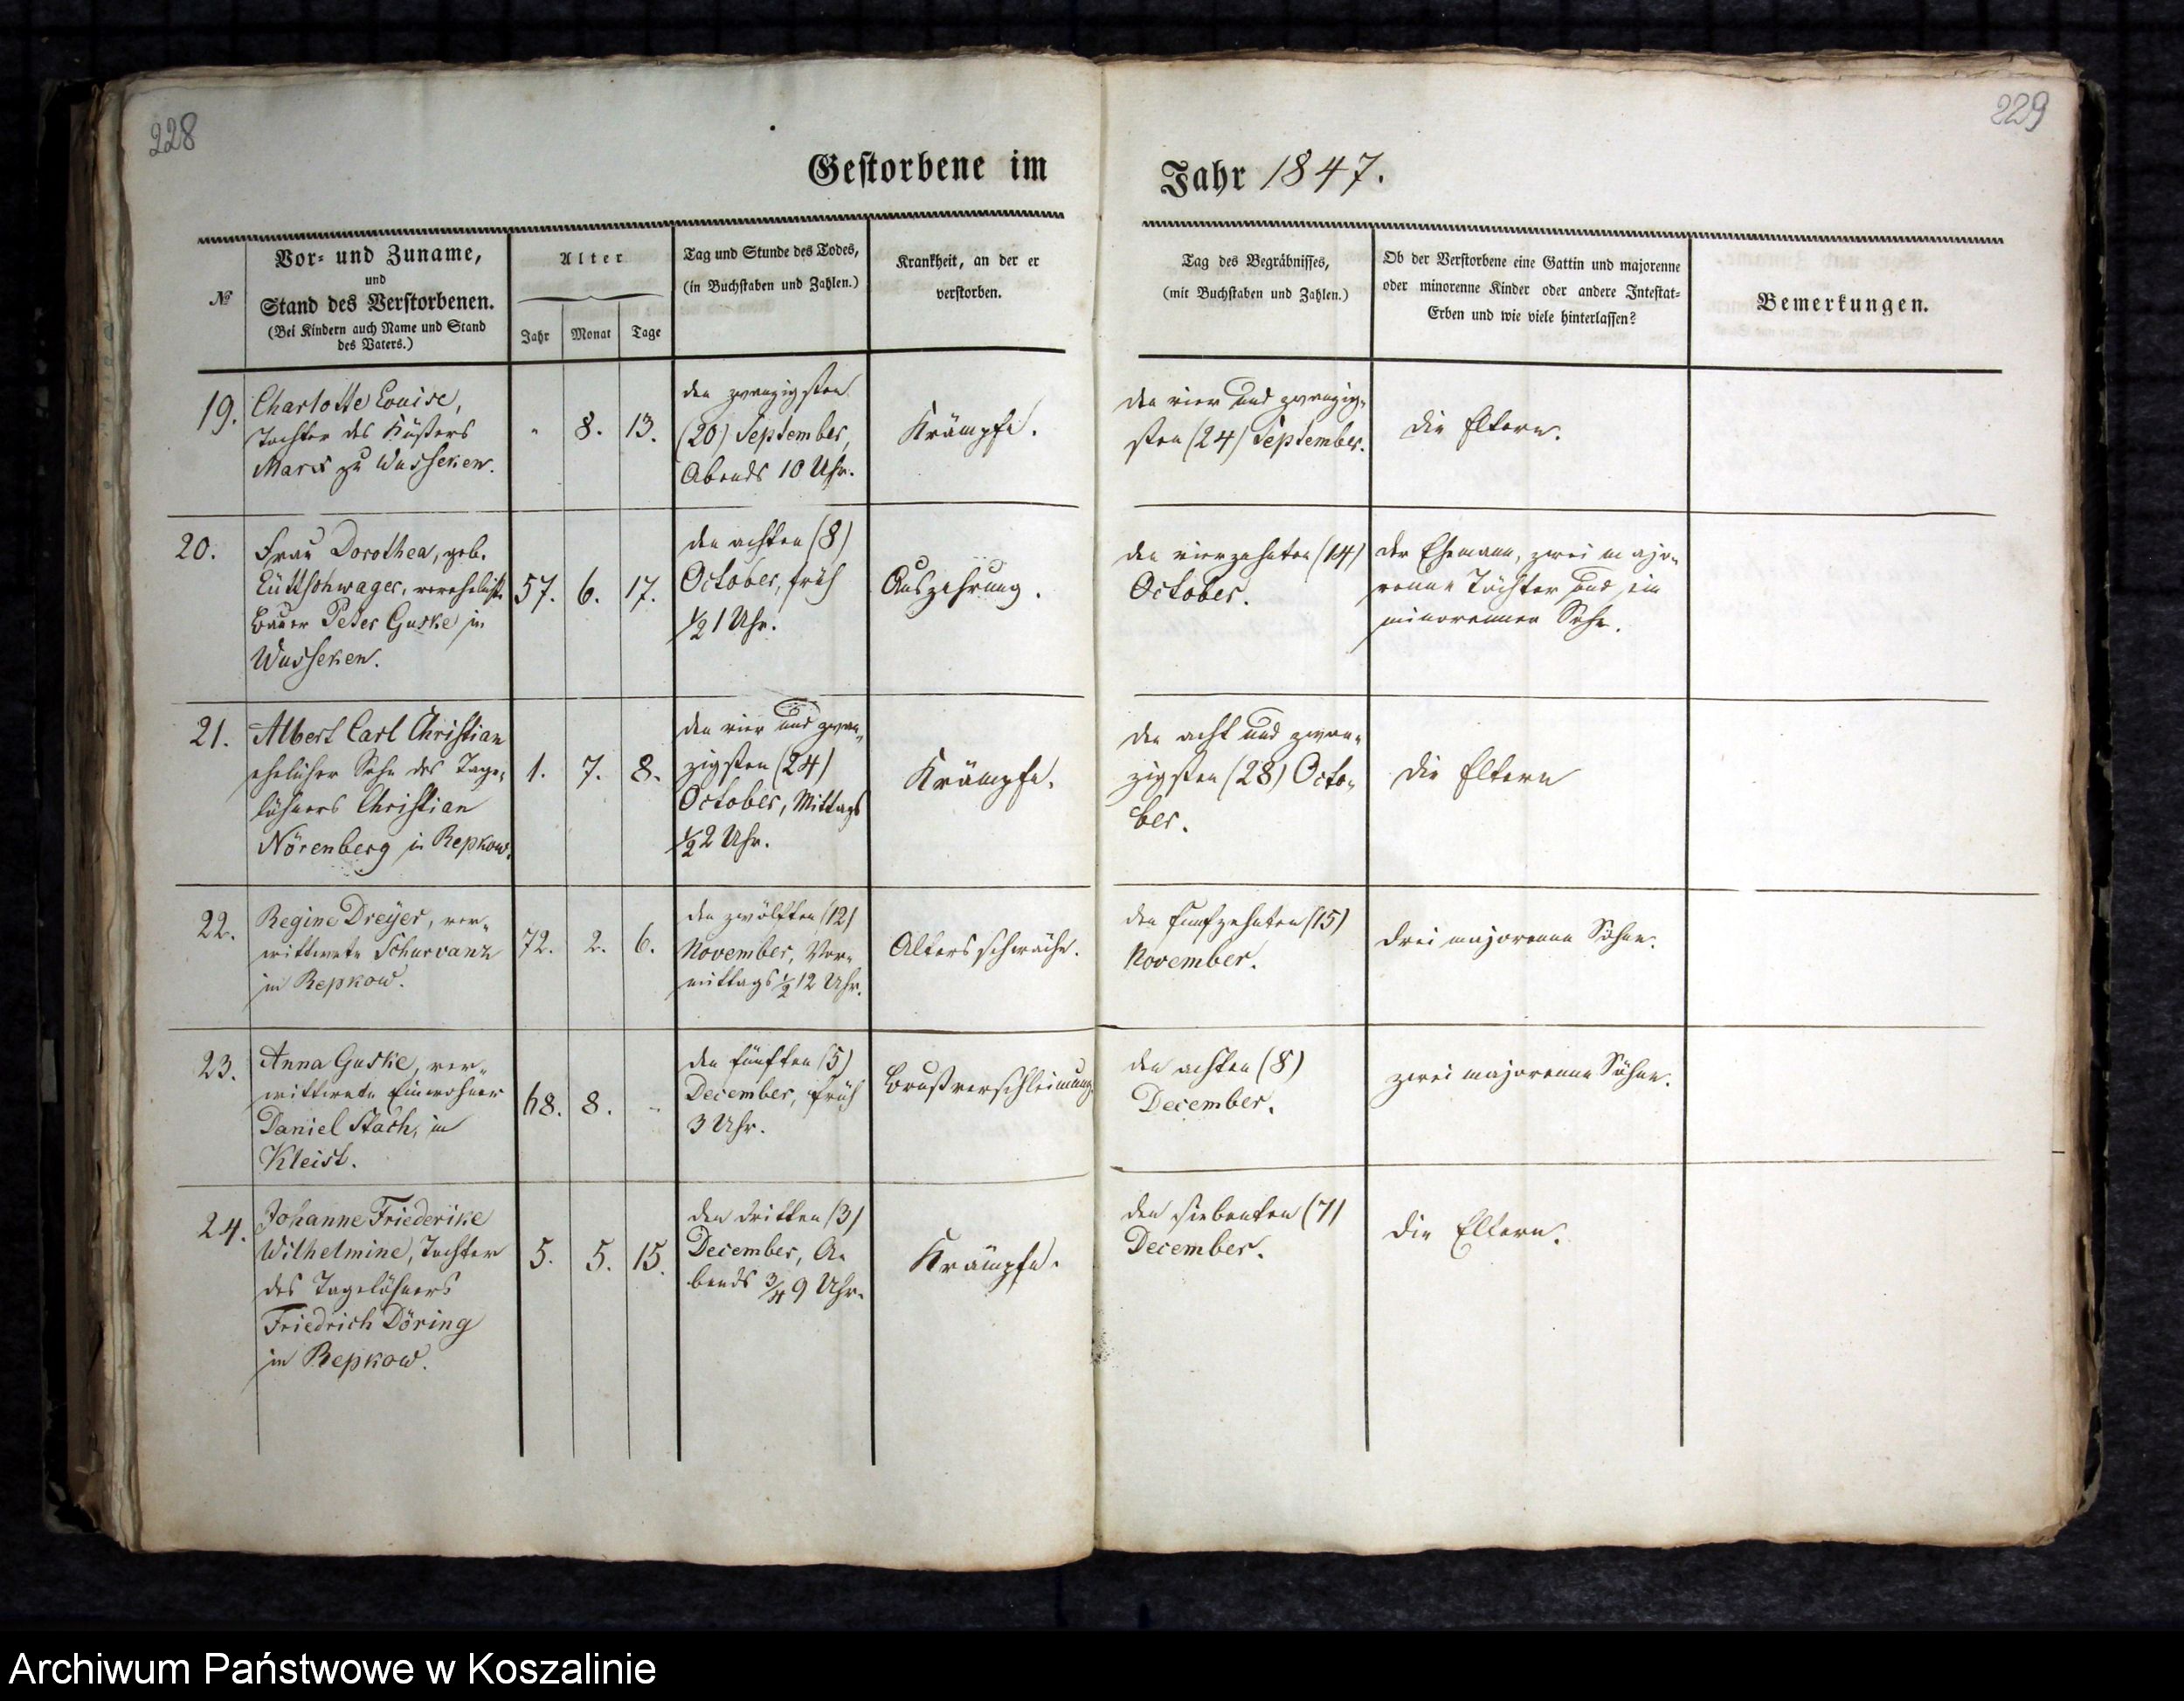 228
229
Gestorbene im
Jahr 1847.
№
Vor- und Zuname,
und
Stand des Verstorbenen.
(Bei Kindern auch Name und Stand
des Vaters.)
Alter
Jahr Monat Tage
Tag und Stunde des Todes,
(in Buchstaben und Zahlen.)
Krankheit, an der er
verstorben.
Tag des Begräbnisses,
(mit Buchstaben und Zahlen.)
Ob der Verstorbene eine Gattin und majorenne
oder minorenne Kinder oder andere Intestat-
Erben und wie viele hinterlassen?
Bemerkungen.
19.
Charlotte Louise,
Tochter des Küsters
Marx zu Wusseken.
" 8. 13.
den zwanzigsten
(20) September,
Abends 10 Uhr.
Krämpfe.
den vier und zwanzig-
sten (24) September.
die Eltern.
20.
Frau Dorothea, geb.
Lüttschwager, verehelicht.
Bauer Peter Guske in
Wusseken.
57. 6. 17.
den achten (8)
October, früh
½ 1 Uhr.
Auszehrung.
den vierzehnten (14)
October.
der Ehemann, zwei majo-
renne Töchter und ein
minorenner Sohn.
21.
Albert Carl Christian
ehelicher Sohn des Tage-
löhners Christian
Nörenberg in Repkow.
1. 7. 8.
den vier und zwan-
zigsten (24)
October, Mittags
½ 2 Uhr.
Krämpfe.
den acht und zwan-
zigsten (28) Octo-
ber.
die Eltern
22.
Regine Dreyer, ver-
wittwete Schurvanz
in Repkow.
72. 2. 6.
den zwölften (12)
November, Vor-
mittags ½ 12 Uhr.
Altersschwäche.
den funfzehnten (15)
November.
drei majorenne Söhne.
23.
Anna Guske, ver-
wittwete Einwohner
Daniel Stach, in
Kleist.
68. 8. -
den fünften (5)
December, früh
3 Uhr.
Brustverschleimung.
den achten (8)
December.
zwei majorenne Söhne.
24.
Johanne Friederike
Wilhelmine, Tochter
des Tagelöhners
Friedrich Döring
in Repkow.
5. 5. 15.
den dritten (3)
December, A-
bends ¾ 9 Uhr.
Krämpfe.
den siebenten (7)
December.
die Eltern.
Archiwum Państwowe w Koszalinie